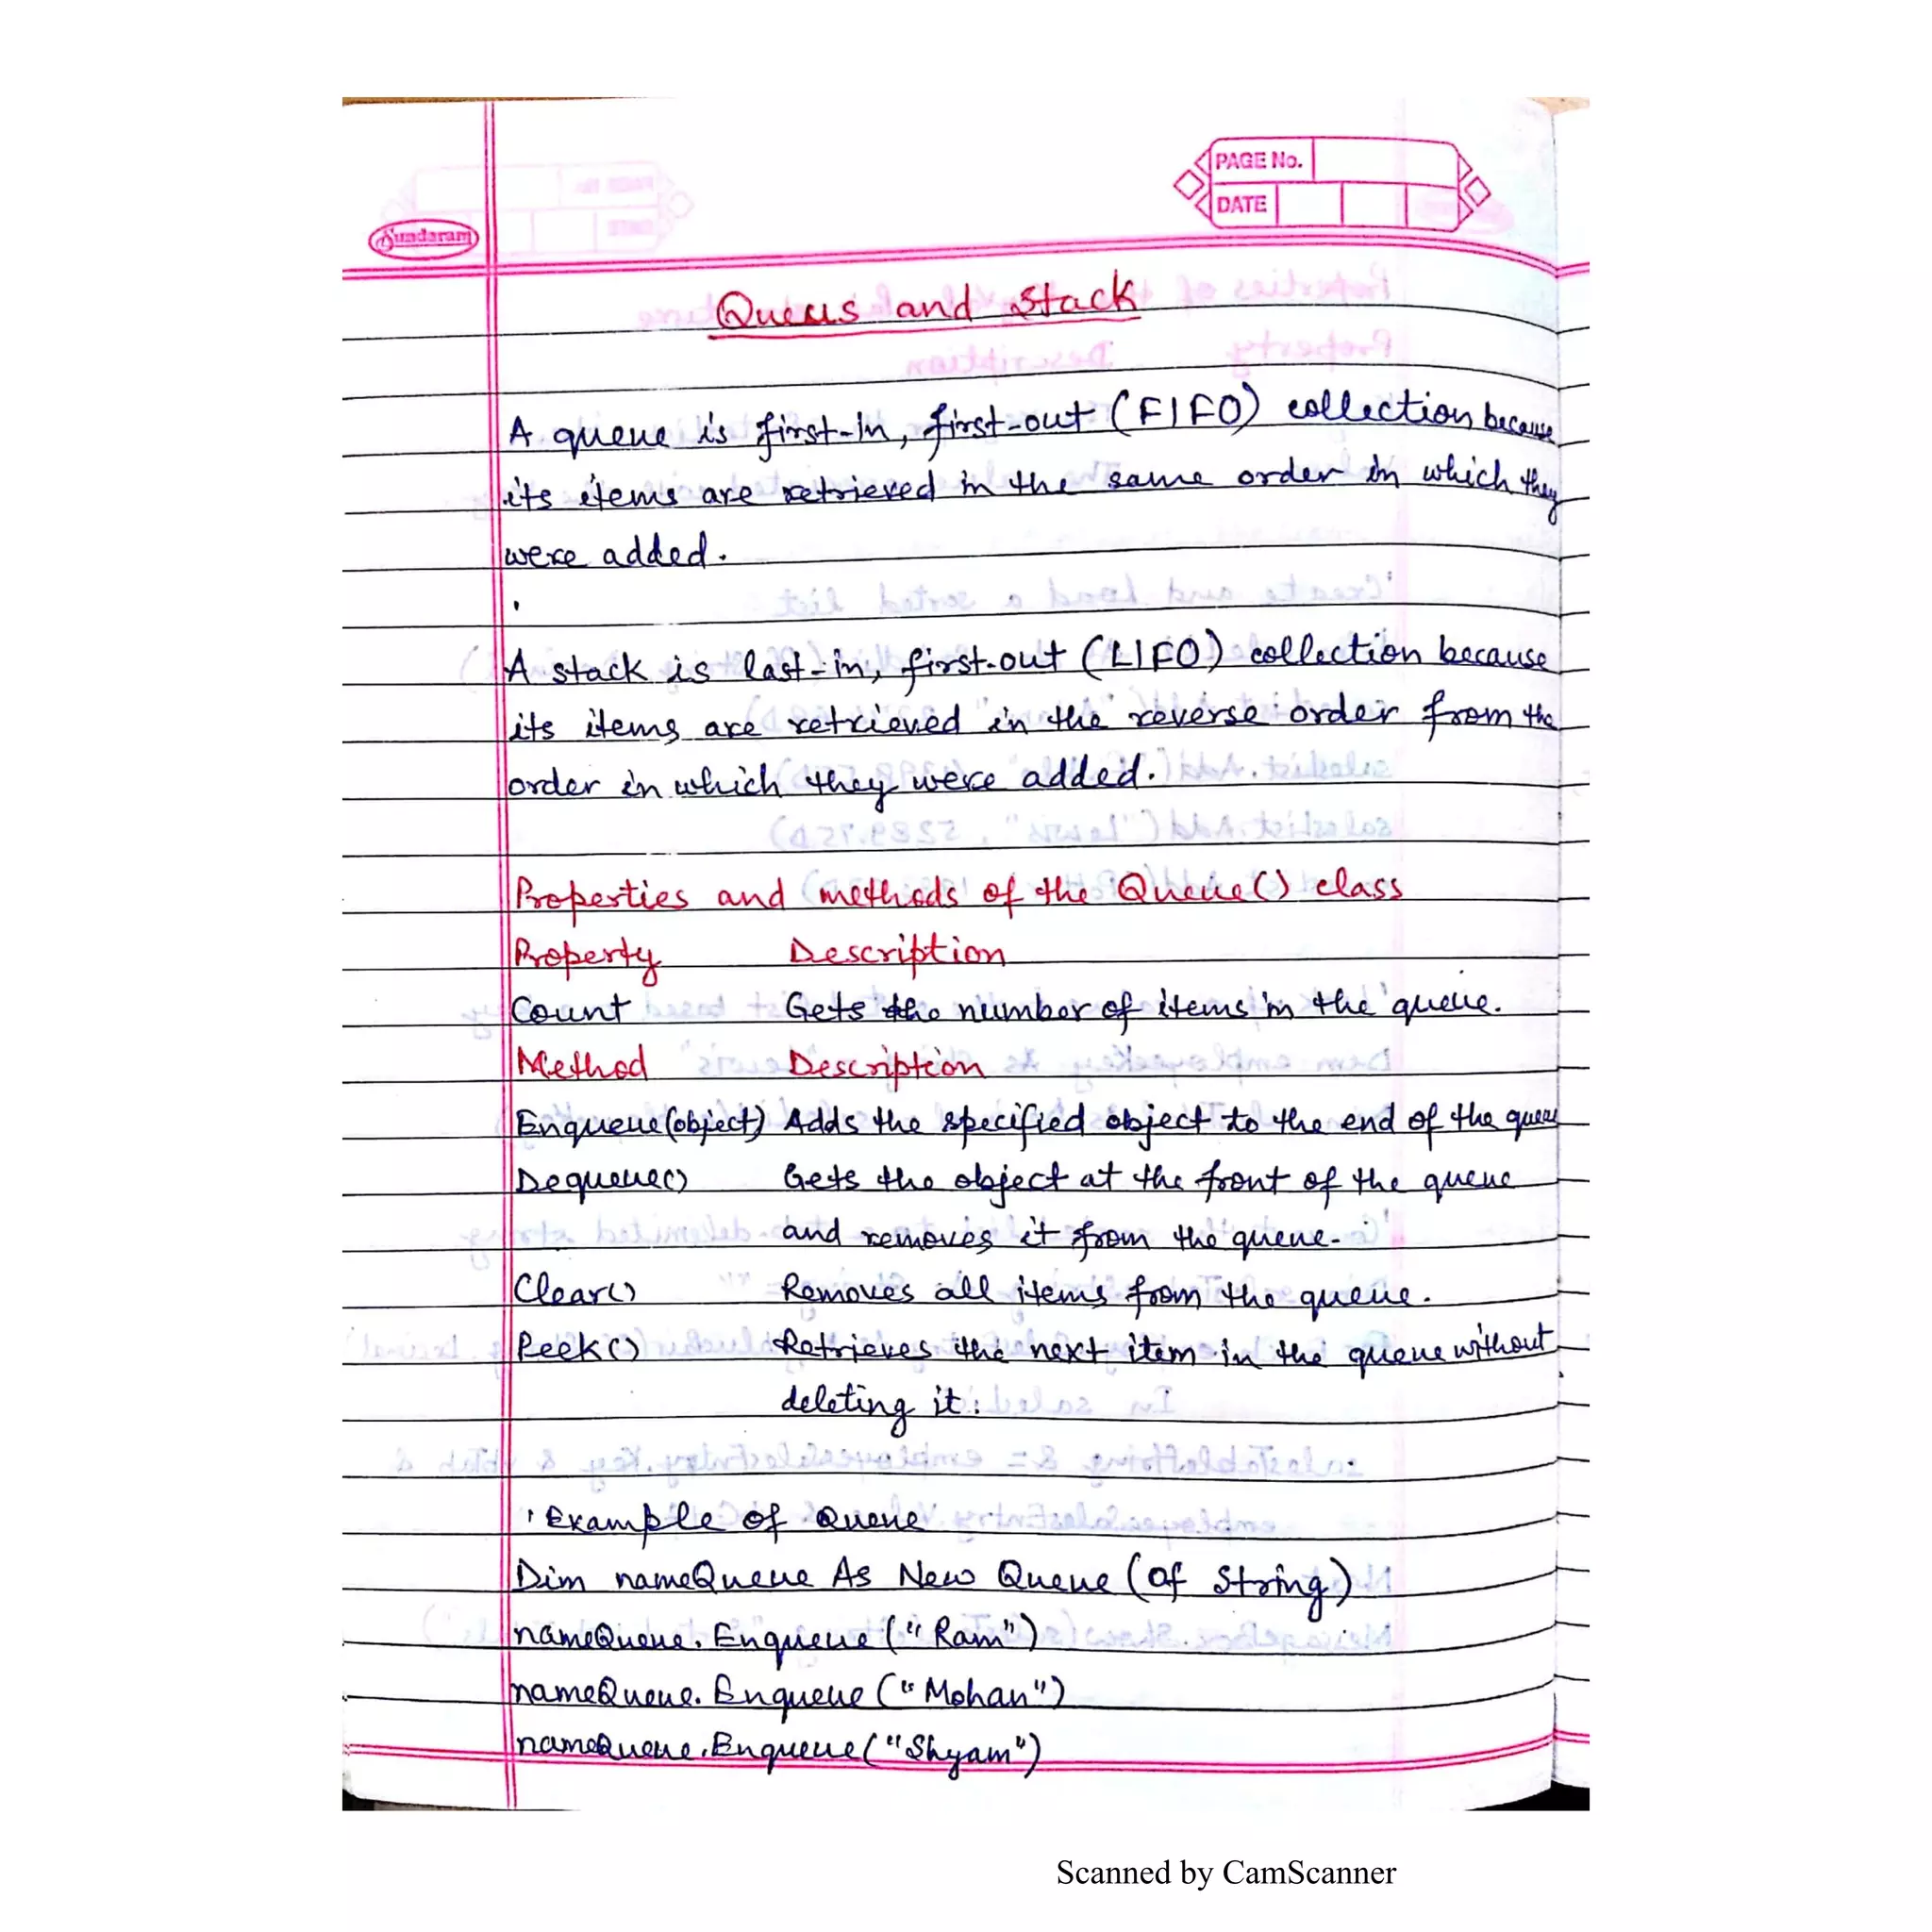 PAGE No.
DATE
Sundaram
Queus and Stack
A queue is first-in, first-out (FIFO) collection because
its items are retrieved in the same order in which they
were added.
A stack is last-in, first-out (LIFO) collection because
its items are retrieved in the reverse order from the
order in which they were added.
Properties and methods of the Queue() class
Property Description
Count Gets the number of items in the queue.
Method Description
Enqueue(object) Adds the specified object to the end of the queue
Dequeue() Gets the object at the front of the queue
and removes it from the queue.
Clear() Removes all items from the queue.
Peek() Retrieves the next item in the queue without
deleting it.
' Example of Queue
Dim nameQueue As New Queue (Of String)
nameQueue.Enqueue ("Ram")
nameQueue.Enqueue ("Mohan")
nameQueue.Enqueue("Shyam")
Scanned by CamScanner